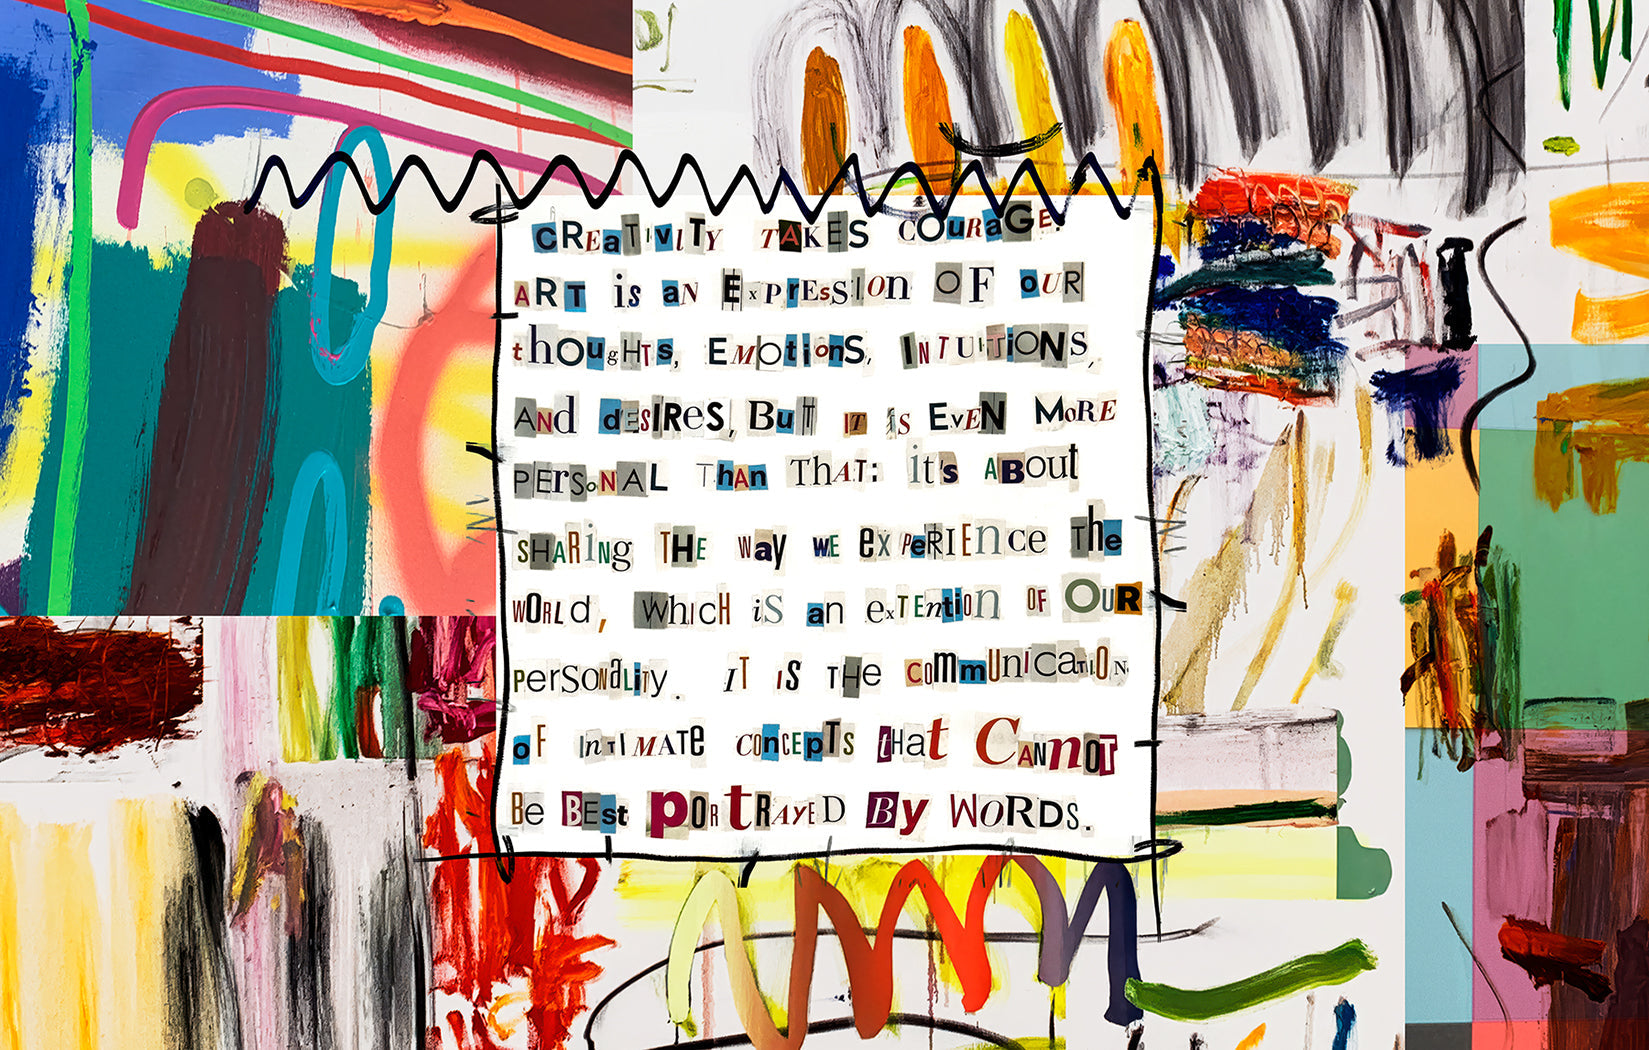 CREATIVITY TAKES COURAGE.
ART is an ExPrEsSIon OF OUR
thOugHTs, EMOtionS, INTUITiONS,
ANd dESIReS, BuT IT iS EvEN MoRE
PErSoNAL ThAn ThAT: it's ABOut
SHARing THE way WE EXPeRIEnce The
WORLd, Which iS an exTEntion OF OUR
PerSOnaLiTy. IT IS THE COmmUnicaTION
oF InTIMATe COncEpTS tHat CANnOT
Be BEst pORtRAYED By WORDS.